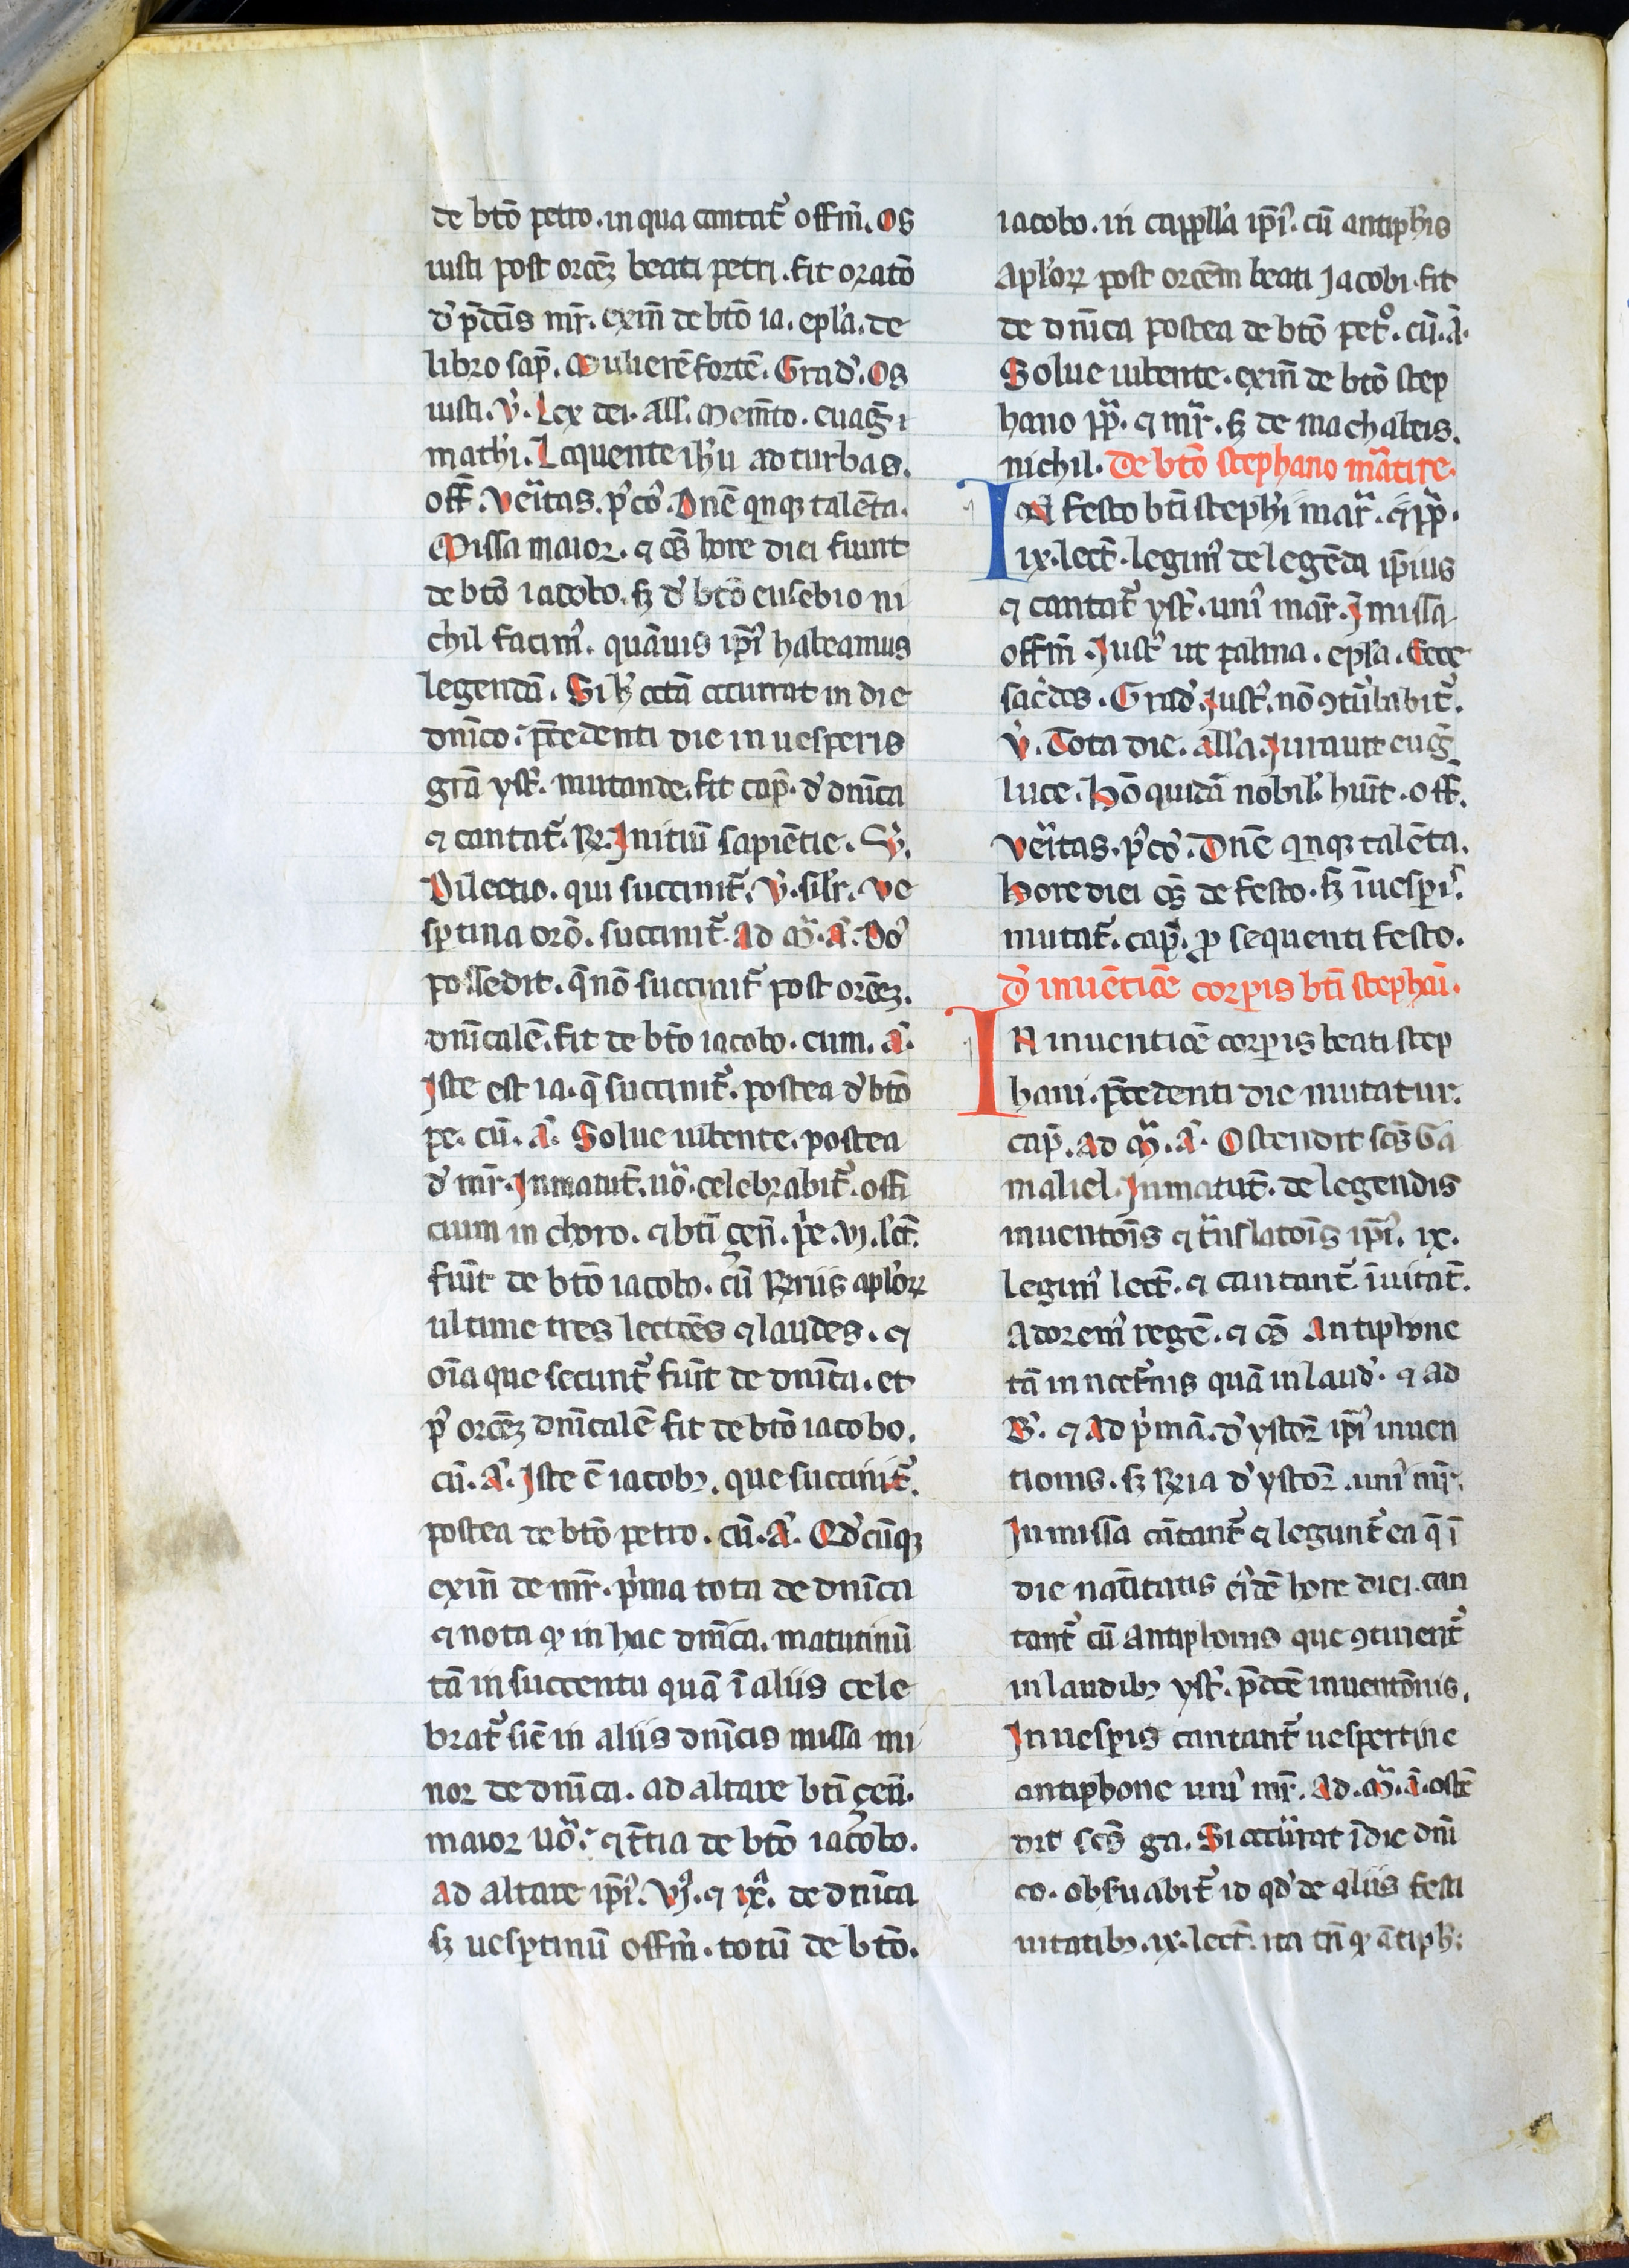 de btō petro. in qua cantat᷑ offm̄. Os
iusti post orcēꝫ beati petri. fit oratō
d̓ p̄dc̄is mr̄. exiñ de btō ia. epl̓a. de
libro sap̄. Mulierē fortē. Grad̓. Os
iusti. v̓. Lex dei. all̓. Mem̄to. euag̅
mathi. Loquente ih̓u ad turbas.
off̄. Veritas. p̓cō. Dn̄e qnqꝫ talēta.
Missa maior. ⁊ oẽs hore diei fiunt
de btō iacobo. sꝫ d̓ btō eusebio ni
chil facim᷒. quāuis ip̄i᷒ habeamus
legendā. Si h̓ octā occurrat in die
dn̄ico p̄cedenti die in uesperis
gr̄a yst̓. mutande. fit cap̄. d̓ dn̄ica
⁊ cantat᷑. ℞. Initiū sapiētie. v̓.
Dilectio. qui succinit᷑. v̓. sil̓r. ve
sꝑtina orō. succinit᷑. ad m̓. a̓. Do
possedit. q̄ nō succinit᷑ post orcēꝫ.
dn̄icalē. fit de btō iacobo. cum. a̓.
Iste est ia. q̄ succinit᷑. postea d̓ btō
pe. cū. a̓. Solue iubente. postea
d̓ mr̄. In matut̄. uō. celebrabit᷑. offi
cium in choro. ⁊ bti̅ gen̄. p̓e. vj. lct̄.
fiūt de btō iacobo. cū ℞riis apl̓oꝝ
ultime tres lectōes ⁊ laudes. ⁊
oīa que secunt᷑ fiūt de dn̄ica. et
p᷒ orcēꝫ dn̄icalē fit de btō iacobo.
cū. a̓. Iste ē iacobꝫ. que succinit᷑.
postea de btō petro. cū. a̓. Qd̓cūqꝫ
exiñ de mr̄. p̓ma tota de dn̄ica
⁊ nota ꝙ in hac dn̄ica. matutinū
tā in succentu quā ī aliis cele
brat᷑ sic̄ in aliis dn̄icis missa mi
nor de dn̄ica. ad altare bti̅ gen̄.
maior uō. ⁊ t̄tia de btō iacobo.
ad altare ip̄i᷒. vjᵃ. ⁊ ixᵃ. de dn̄ica
sꝫ uesꝑtinū offm̄. totū de btō.
iacobo. in cappll̓a ip̄i᷒. cū antiph̓is
apl̓oꝝ post orcēm beati Jacobi. fit
de dn̄ica postea de btō petᵒ. cū. a̓.
Solue iubente. exiñ de btō step
hano pp̄. ⁊ mr̄. sꝫ de machabeis.
nichil. De btō stephano mātire.
IN festo bti̅ steph̓i mar̄. ⁊ pp̄.
ix. lect̄. legim᷒ de legēda ip̄ius
⁊ cantat᷑ yst̓. uni᷒ mār. I missa
offm̄. Just᷒ ut palma. epl̓a. Ecce
sac̓dos. Grad̓. Just᷒. nō ꝯt᷑babit᷑.
v̓. Tota die. all̓a. Jurauit eug̅
luce. Hō quidā nobil̓. huīt. off̄.
Veritas. p̓cō. Dn̄e qnqꝫ talēta.
Hore diei oẽs de festo. sꝫ ī uesꝑi᷒.
mutat᷑. cap̄. ꝓ sequenti festo.
d̓ inuētiōe corꝑis bti̅ stephāi.
IN inuentiōe corꝑis beati step
hani. p̄cedenti die mutatur.
cap̄. ad m̓. a̓. Ostendit scs̄ Ga
maliel. In matut̄. de legendis
inuentōis ⁊ t᷑nslatōis ip̄i᷒. ix.
legim᷒ lect̄. ⁊ cantant᷑ īuitat̄.
Adorem᷒ regē. ⁊ oẽs Antiphone
tā in noct᷑nis quā in laud̓. ⁊ ad
B̓. ⁊ ad p̓mā. d̓ ystor̄ ip̄i᷒ inuen
tionis. sꝫ ℞ria d̓ ystor̄. uni᷒ mr̄.
In missa cātant᷑ ⁊ legunt᷑ ea q̄ ī
die natiuitatis ei᷒dē hore diei. can
tant᷑ cū antiphonis que ꝯtinent᷑
in laudibꝫ yst̓. p̄dcē inuentōnis.
In uesꝑis cantant᷑ uespertine
antiphone uni᷒ mr̄. ad. m̓. a̓. ostē
dit scs̄ ga. Si occurrat ī die dn̄i
co. obẜuabit᷑ id qd̓ de aliis festi
uitatibꝫ. ix. lect̄. ita tn̄ ꝙ ātiph̓.